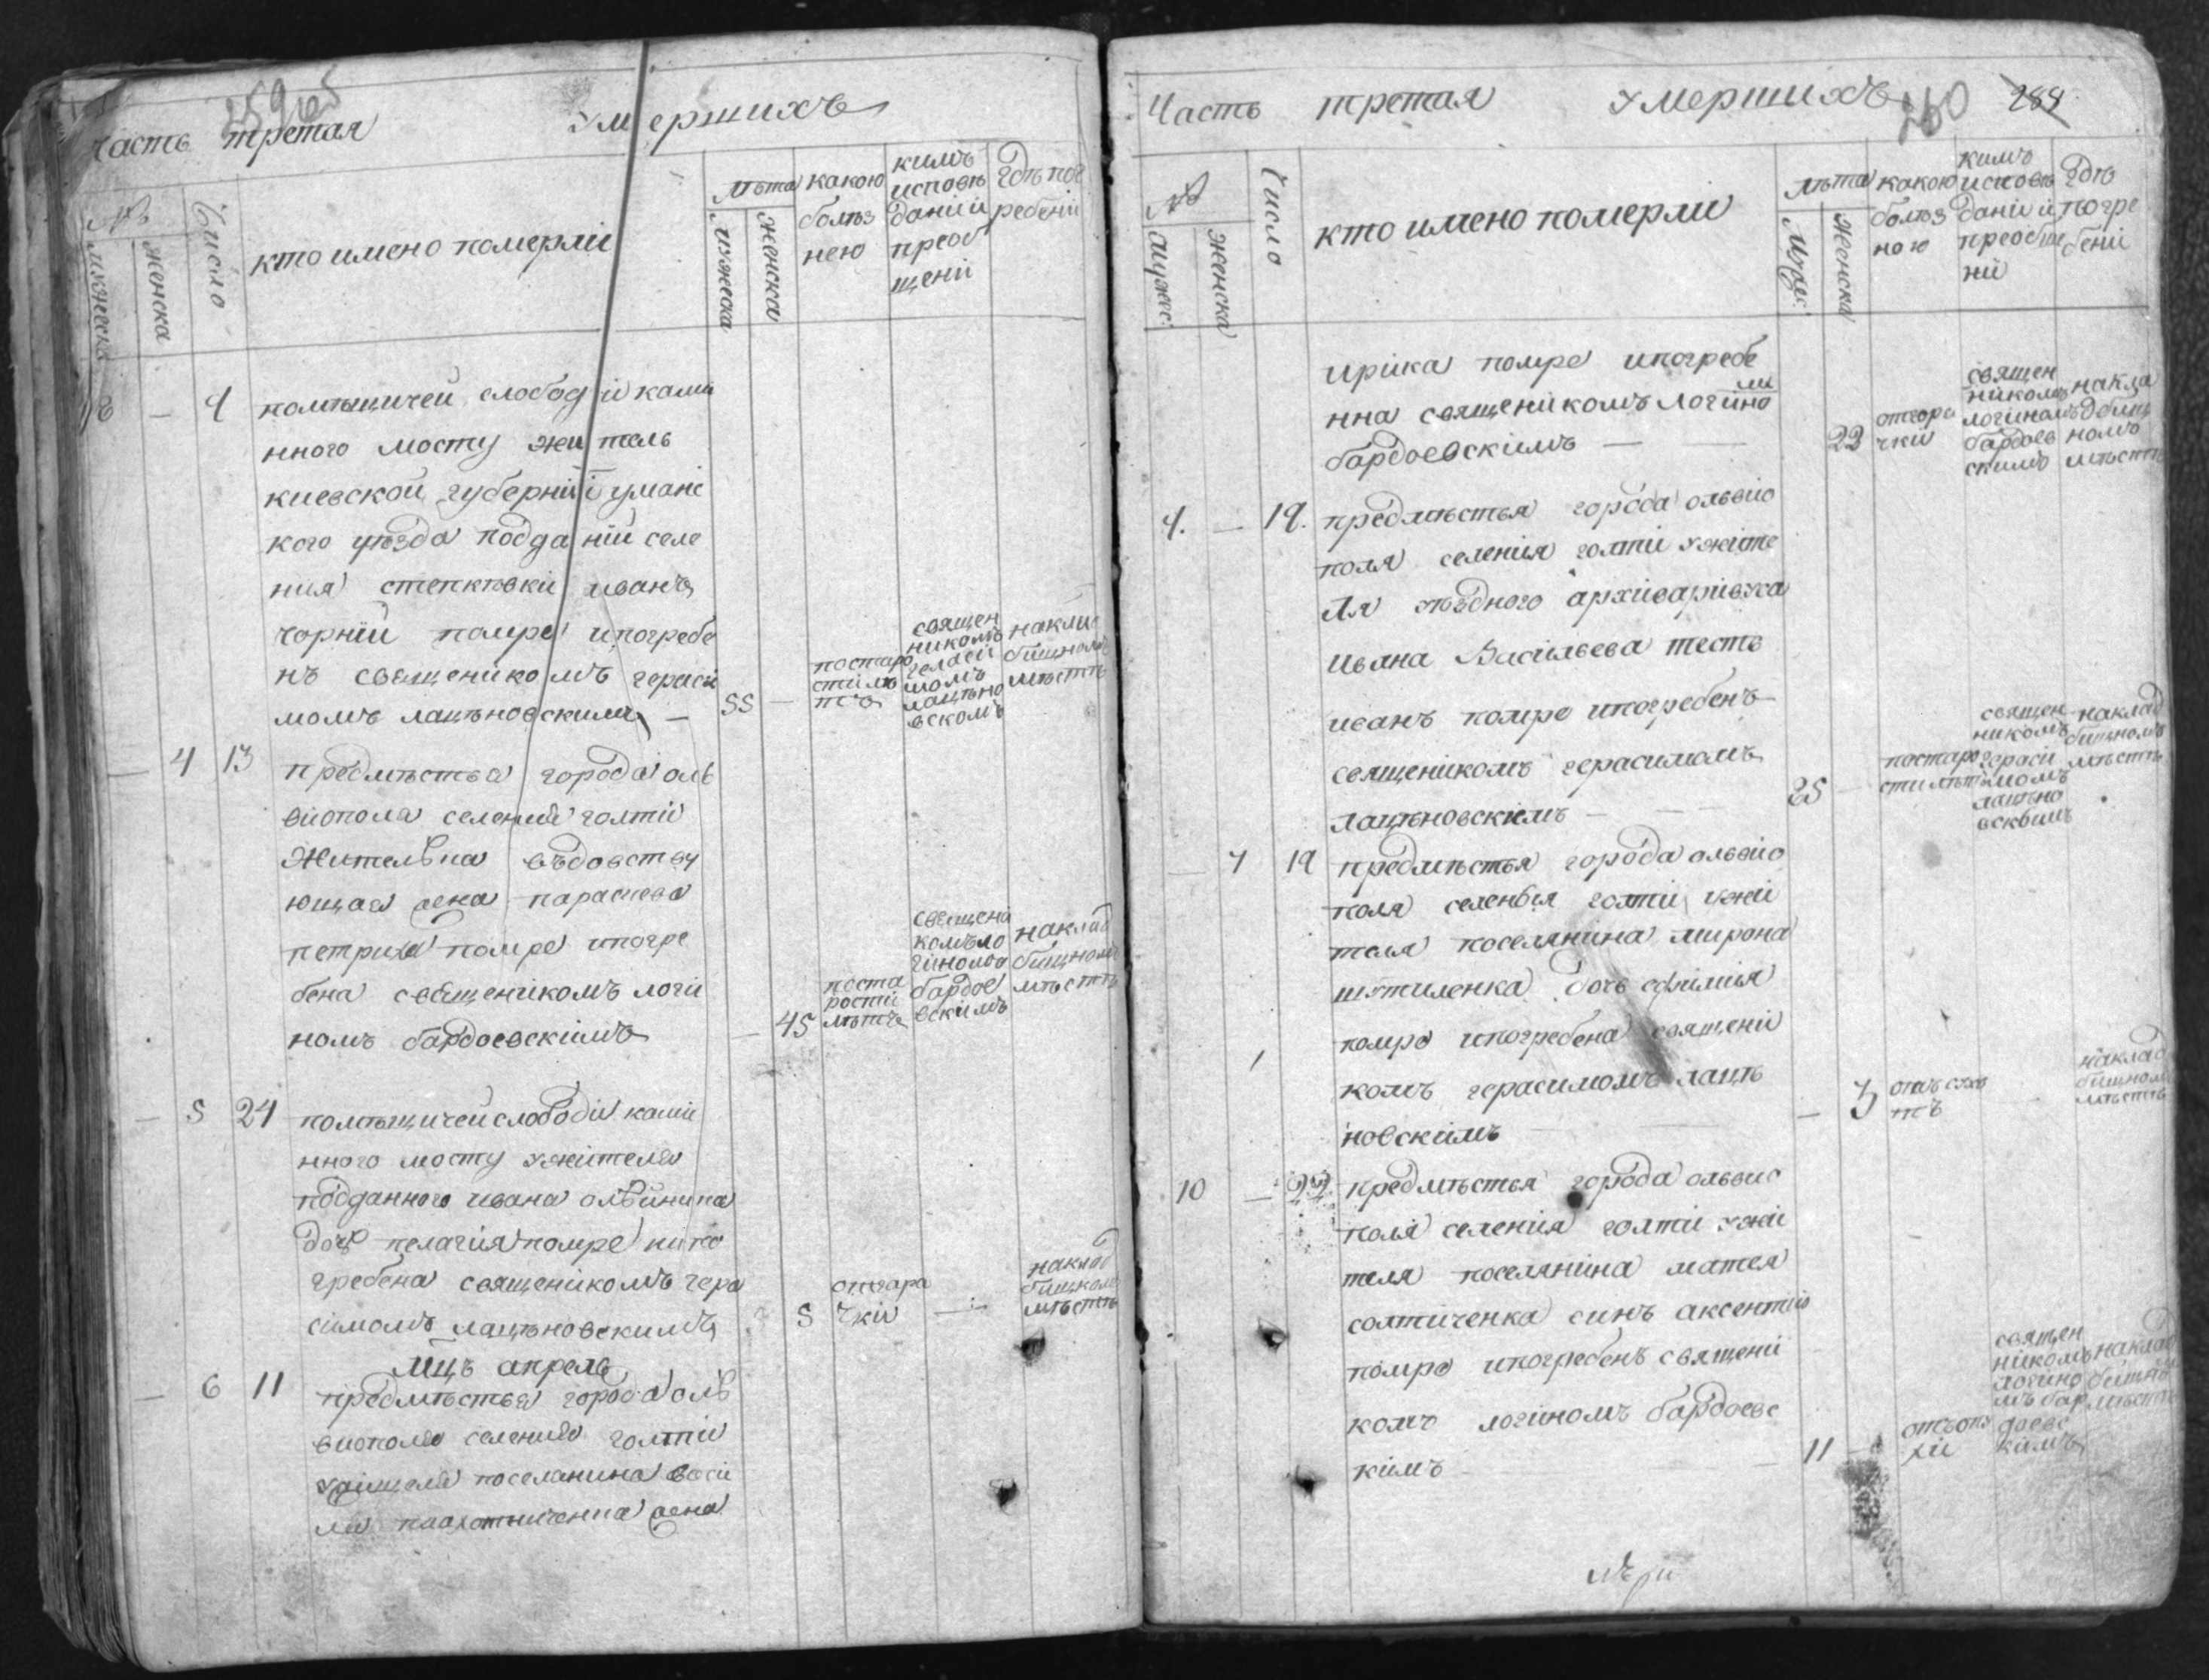 Часть третая умершихъ
№
мужеска
женска
Число
кто имено померлі
лѣта
мужеска
женска
какою
болѣз
нею
кимъ
исповѣ
даніи и
преоб
щени
Гдѣ пог
ребени
4
помѣщичей слободи каме
нного мосту житель
киевской губерніи уманс
кого уѣзда подданій селе
ния иванъ
чорній помре ипогребе
нъ священікомъ гераси
момъ лацѣновскимъ —
55 —
постаро
сти лѣ
тъ
священ
никомъ
момъ
лацѣно
вскомъ
накла
бищномъ
мѣстѣ
— 4 13
предмѣстья города оль
виополя селения голти
Жителька вдовству
ющая жена параскева
помре ипогре
бена священікомъ логи
номъ бардоевскимъ
— 45
поста
рости
лѣтъ
священі
комъ ло
гіномъ
бардое
вскімъ
наклад
бищномъ
мѣстѣ
— 5 24
помѣщичей слободи камі
нного мосту ужителя
подданного ивана олѣйника
дочь пелагія помре ипо
гребена священікомъ гера
сімомъ лацѣновскимъ
5
отгаря
чки
—
наклад
бищномъ
мѣстѣ
Мцъ апрель
— 6 11
предмѣстья города оль
виополя селения голти
ужителя поселянина васи
ля жена
Часть третая умершихъ
260 289
№
мужес:
женска
Число
кто имено померли
лѣта
Мужес:
Женска
какою
болѣз
ною
кимъ
исповѣ
даніи и
преобще
ній
Гдѣ
погре
бені
иріна помре ипогребе
нна священікомъ логино
мъ
бардоевскимъ —
22
отгоря
чки
священ
нікомъ
логиномъ
бардоев
скимъ
накла
дбищ
номъ
мѣстѣ
9. — 19.
предмѣстья города ольвіо
поля селения голти ужіте
ля уѣздного архіваріуса
ивана Васильева тесть
иванъ помре ипогребенъ
священікомъ герасимомъ
лацѣновскимъ —
25
постаро
сти лѣтъ
священ
никомъ
гераси
момъ
лацѣно
вскомъ
наклад
бищномъ
мѣстѣ
— 7 19
предмѣстья города ольвіо
поля селенья голти ужи
теля поселянина мирона
шутиленка дочь ефимия
помре ипогребена священі
комъ герасимомъ лацѣ
новскимъ
— 3
наклад
бищном
мѣстѣ
10 — 22
предмѣстья города ольвио
поля селения голти ужи
теля поселянина матея
солтиченка синъ аксентій
помре ипогребенъ священі
комъ логіномъ бардоевс
кімъ —
11
священ
нікомъ
логино
мъ бар
доевс
кимъ
наклад
бищно
мѣстѣ